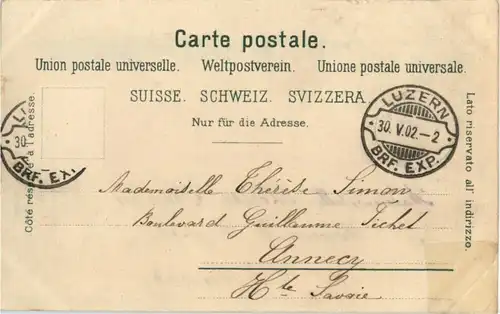 Carte postale.
Union postale universelle. Weltpostverein. Unione postale universale.
SUISSE. SCHWEIZ. SVIZZERA.
Nur für die Adresse.
Côté rés e à l'adresse.
LU
30.
BRF. EX.
LUZERN
30. V. 02. – 2
BRF. EXP.
Lato riservato all' indirizzo.
Mademoiselle Thérèse Simon
Boulevard Guillaume Fichet
Annecy
Hte Savoie